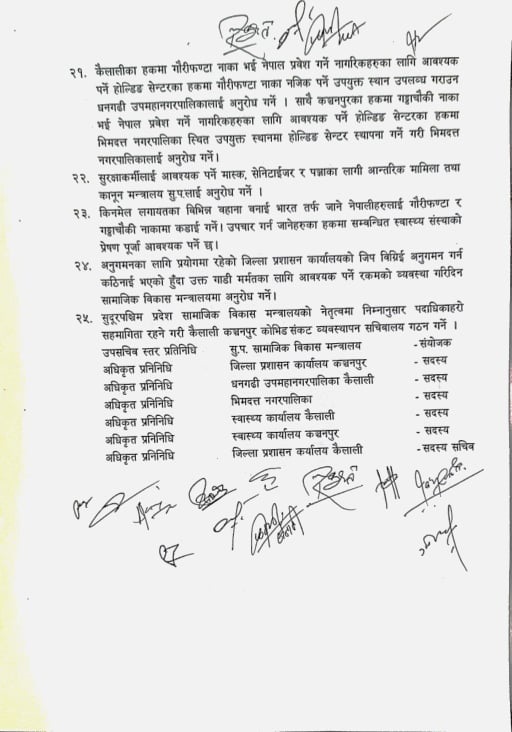 २१. कैलालीका हकमा गौरीफण्टा नाका भई नेपाल प्रवेश गर्ने नागरिकहरुका लागि आवश्यक
पर्ने होल्डिङ सेन्टरका हकमा गौरीफण्टा नाका नजिक पर्ने उपयुक्त स्थान उपलब्ध गराउन
धनगढी उपमहानगरपालिकालाई अनुरोध गर्ने । साथै कञ्चनपुरका हकमा गड्डाचौकी नाका
भई नेपाल प्रवेश गर्ने नागरिकहरुका लागि आवश्यक पर्ने होल्डिङ सेन्टरका हकमा
भिमदत्त नगरपालिका स्थित उपयुक्त स्थानमा होल्डिङ सेन्टर स्थापना गर्ने गरी भिमदत्त
नगरपालिकालाई अनुरोध गर्ने।
२२. सुरक्षाकर्मीलाई आवश्यक पर्ने मास्क, सेनिटाईजर र पञ्जाका लागी आन्तरिक मामिला तथा
कानून मन्त्रालय सु.प.लाई अनुरोध गर्ने ।
२३. किनमेल लगायतका विभिन्न वहाना बनाई भारत तर्फ जाने नेपालीहरुलाई गौरीफण्टा र
गड्डाचौकी नाकामा कडाई गर्ने। उपचार गर्न जानेहरुका हकमा सम्बन्धित स्वास्थ्य संस्थाको
प्रेषण पूर्जा आवश्यक पर्ने छ।
२४. अनुगमनका लागि प्रयोगमा रहेको जिल्ला प्रशासन कार्यालयको जिप बिग्रिई अनुगमन गर्न
कठिनाई भएको हुँदा उक्त गाडी मर्मतका लागि आवश्यक पर्ने रकमको व्यवस्था गरिदिन
सामाजिक विकास मन्त्रालयमा अनुरोध गर्ने।
२५. सुदूरपश्चिम प्रदेश सामाजिक विकास मन्त्रालयको नेतृत्वमा निम्नानुसार पदाधिकाहरो
सहभागिता रहने गरी कैलाली कञ्चनपुर कोभिड संकट व्यवस्थापन सचिबालय गठन गर्ने ।
उपसचिव स्तर प्रतिनिधि सु.प. सामाजिक विकास मन्त्रालय - संयोजक
अधिकृत प्रनिनिधि जिल्ला प्रशासन कार्यालय कञ्चनपुर - सदस्य
अधिकृत प्रनिनिधि धनगढी उपमहानगरपालिका कैलाली - सदस्य
अधिकृत प्रनिनिधि भिमदत्त नगरपालिका - सदस्य
अधिकृत प्रनिनिधि स्वास्थ्य कार्यालय कैलाली - सदस्य
अधिकृत प्रनिनिधि स्वास्थ्य कार्यालय कञ्चनपुर - सदस्य
अधिकृत प्रनिनिधि जिल्ला प्रशासन कर्यालय कैलाली - सदस्य सचिब